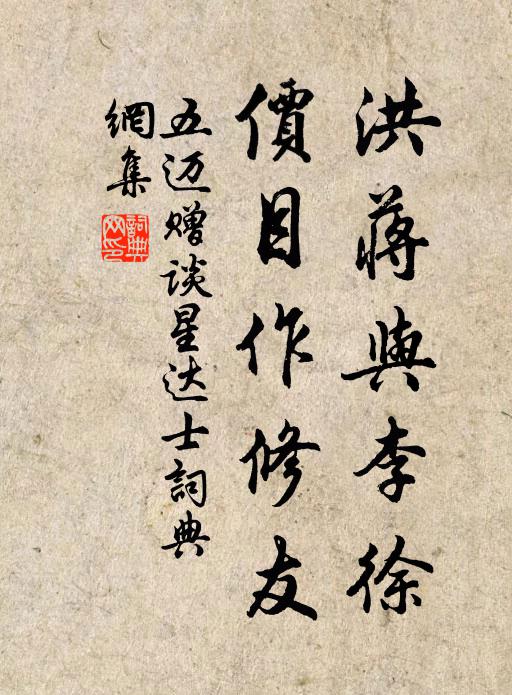 洪蔣與李徐
價目作修友
五迈赠谈星达士詞典
網集
詞典
网印